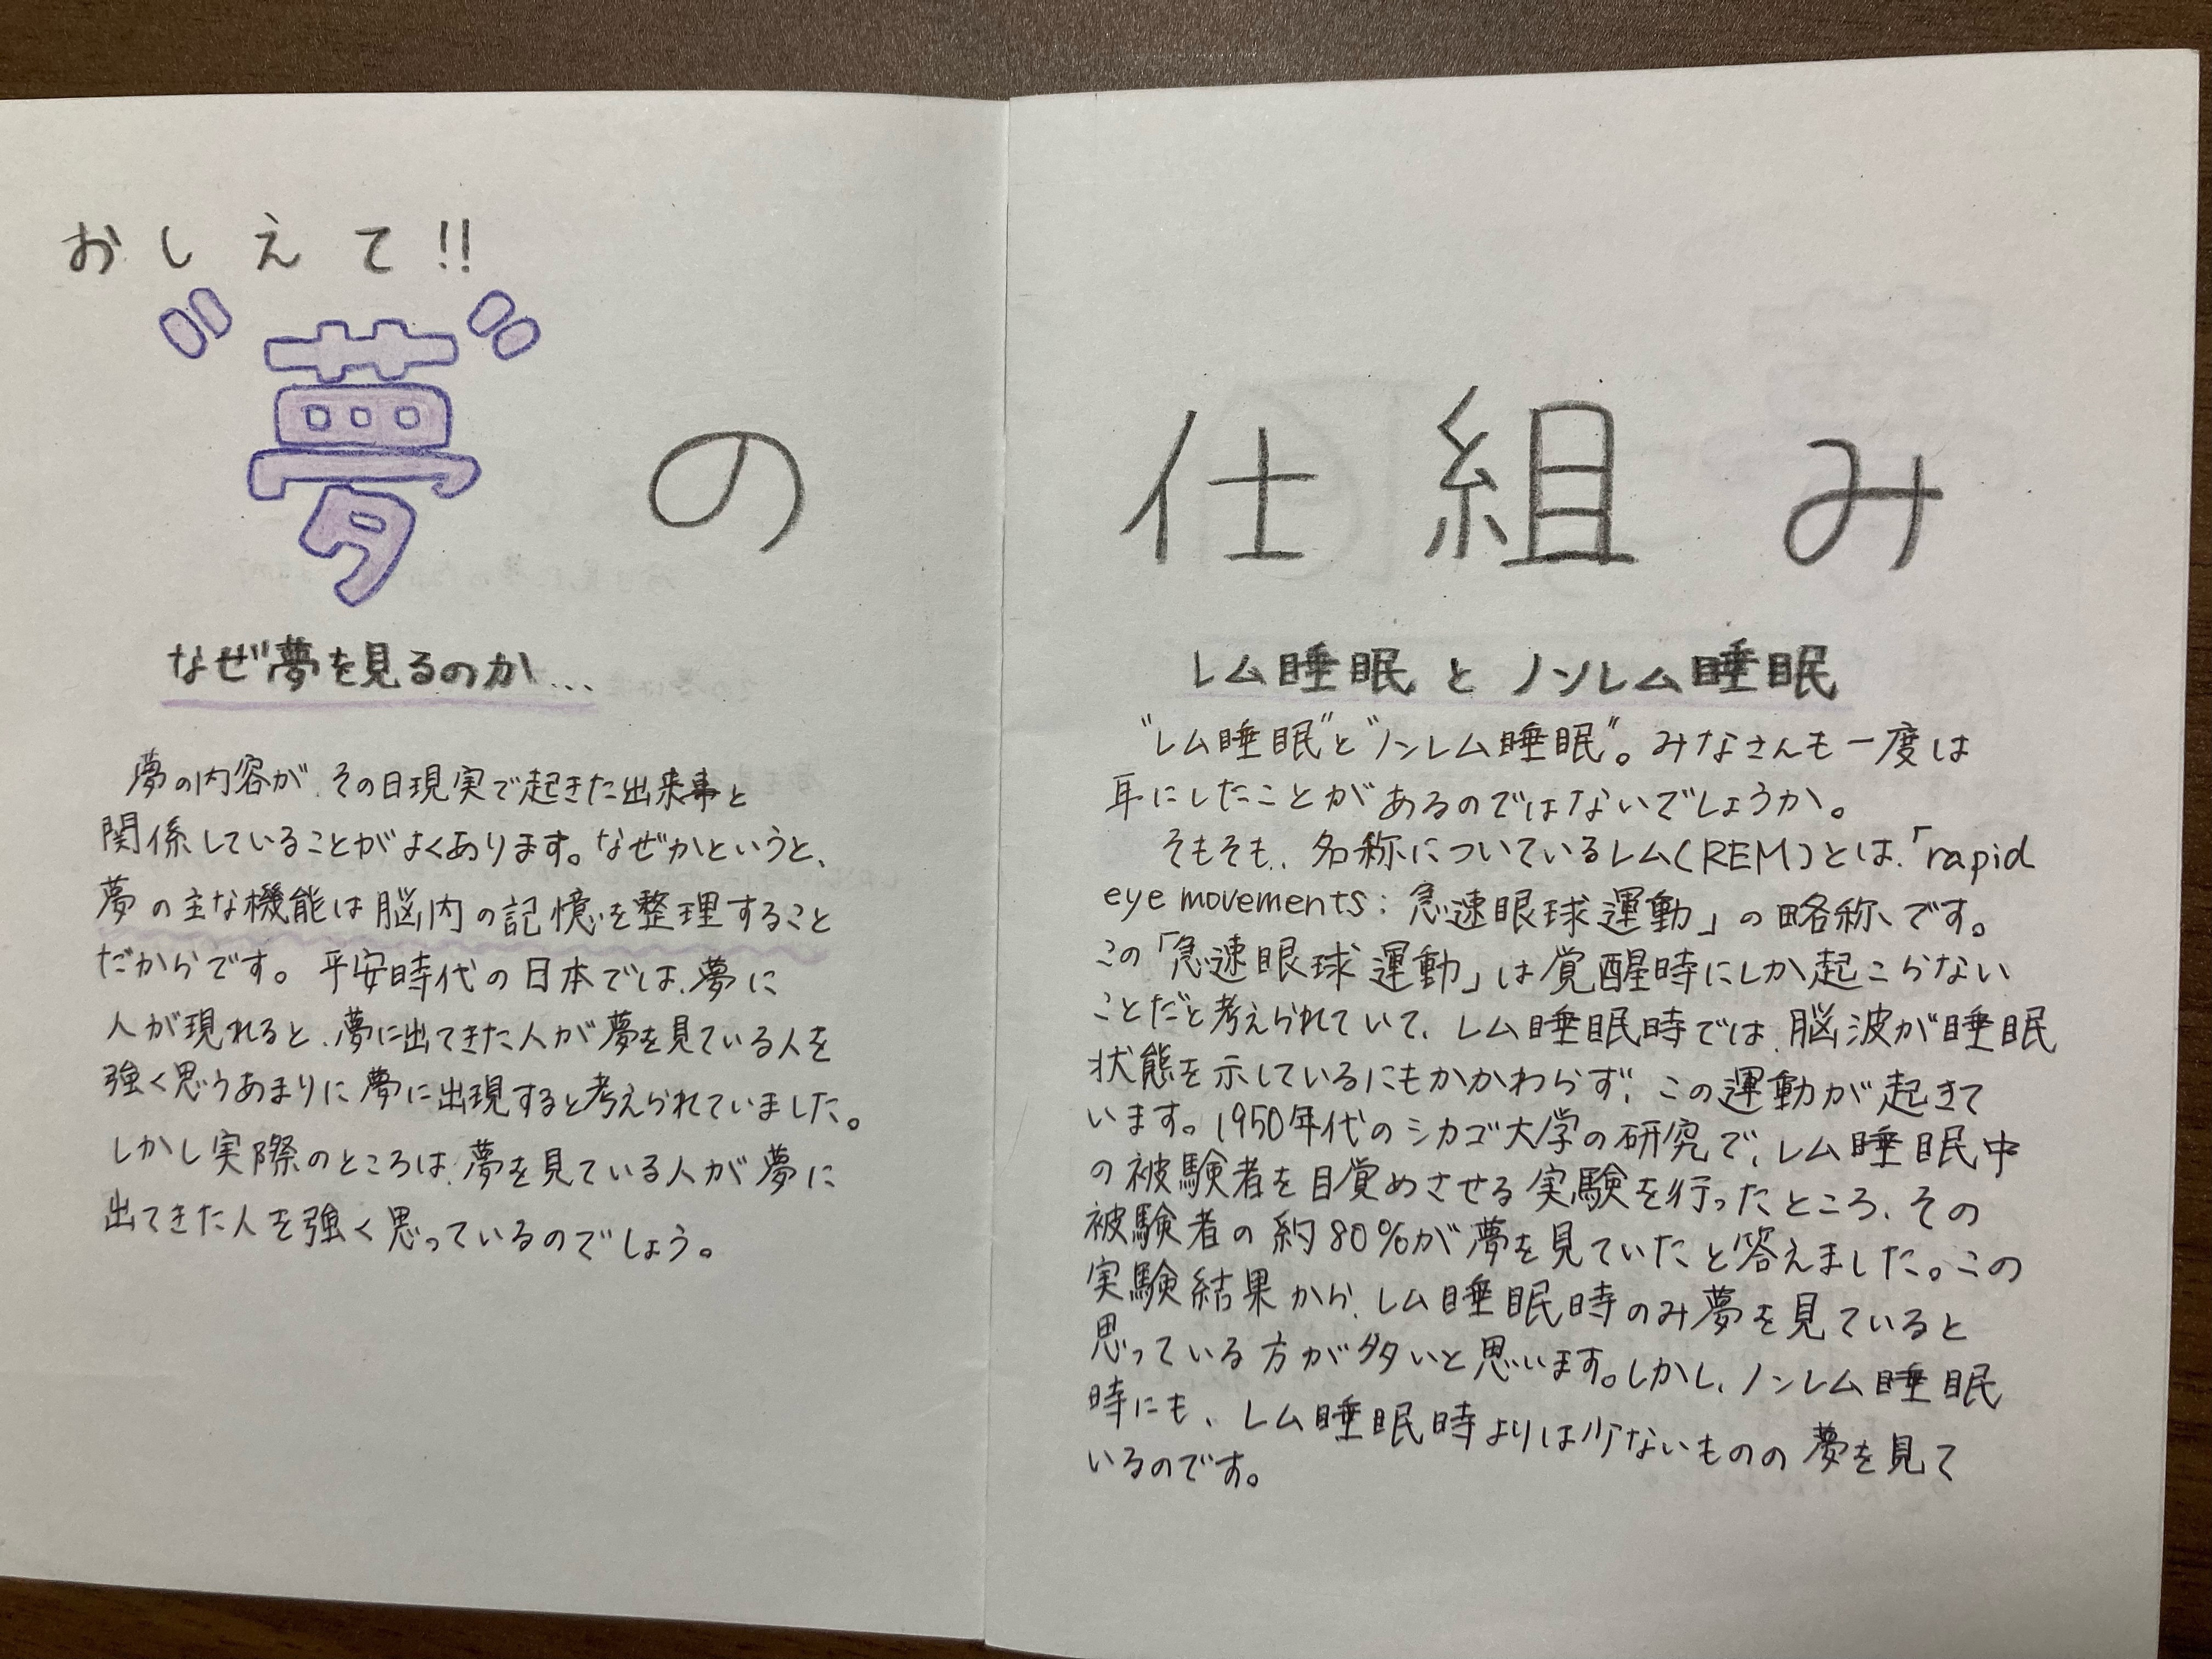 おしえて!!
夢の仕組み
なぜ夢を見るのか...
夢の内容が、その日現実で起きた出来事と
関係していることがよくあります。なぜかというと、
夢の主な機能は脳内の記憶を整理すること
だからです。平安時代の日本では、夢に
人が現れると、夢に出てきた人が夢を見ている人を
強く思うあまりに夢に出現すると考えられていました。
しかし実際のところは、夢を見ている人が夢に
出てきた人を強く思っているのでしょう。
レム睡眠とノンレム睡眠
"レム睡眠"と"ノンレム睡眠"。みなさんも一度は
耳にしたことがあるのではないでしょうか。
そもそも、名称についているレム(REM)とは、「rapid
eye movements:急速眼球運動」の略称です。
この「急速眼球運動」は覚醒時にしか起こらない
ことだと考えられていて、レム睡眠時では、脳波が睡眠
状態を示しているにもかかわらず、この運動が起きて
います。1950年代のシカゴ大学の研究で、レム睡眠中
の被験者を目覚めさせる実験を行ったところ、その
被験者の約80%が夢を見ていたと答えました。この
実験結果から、レム睡眠時のみ夢を見ていると
思っている方が多いと思います。しかし、ノンレム睡眠
時にも、レム睡眠時よりは少ないものの夢を見て
いるのです。